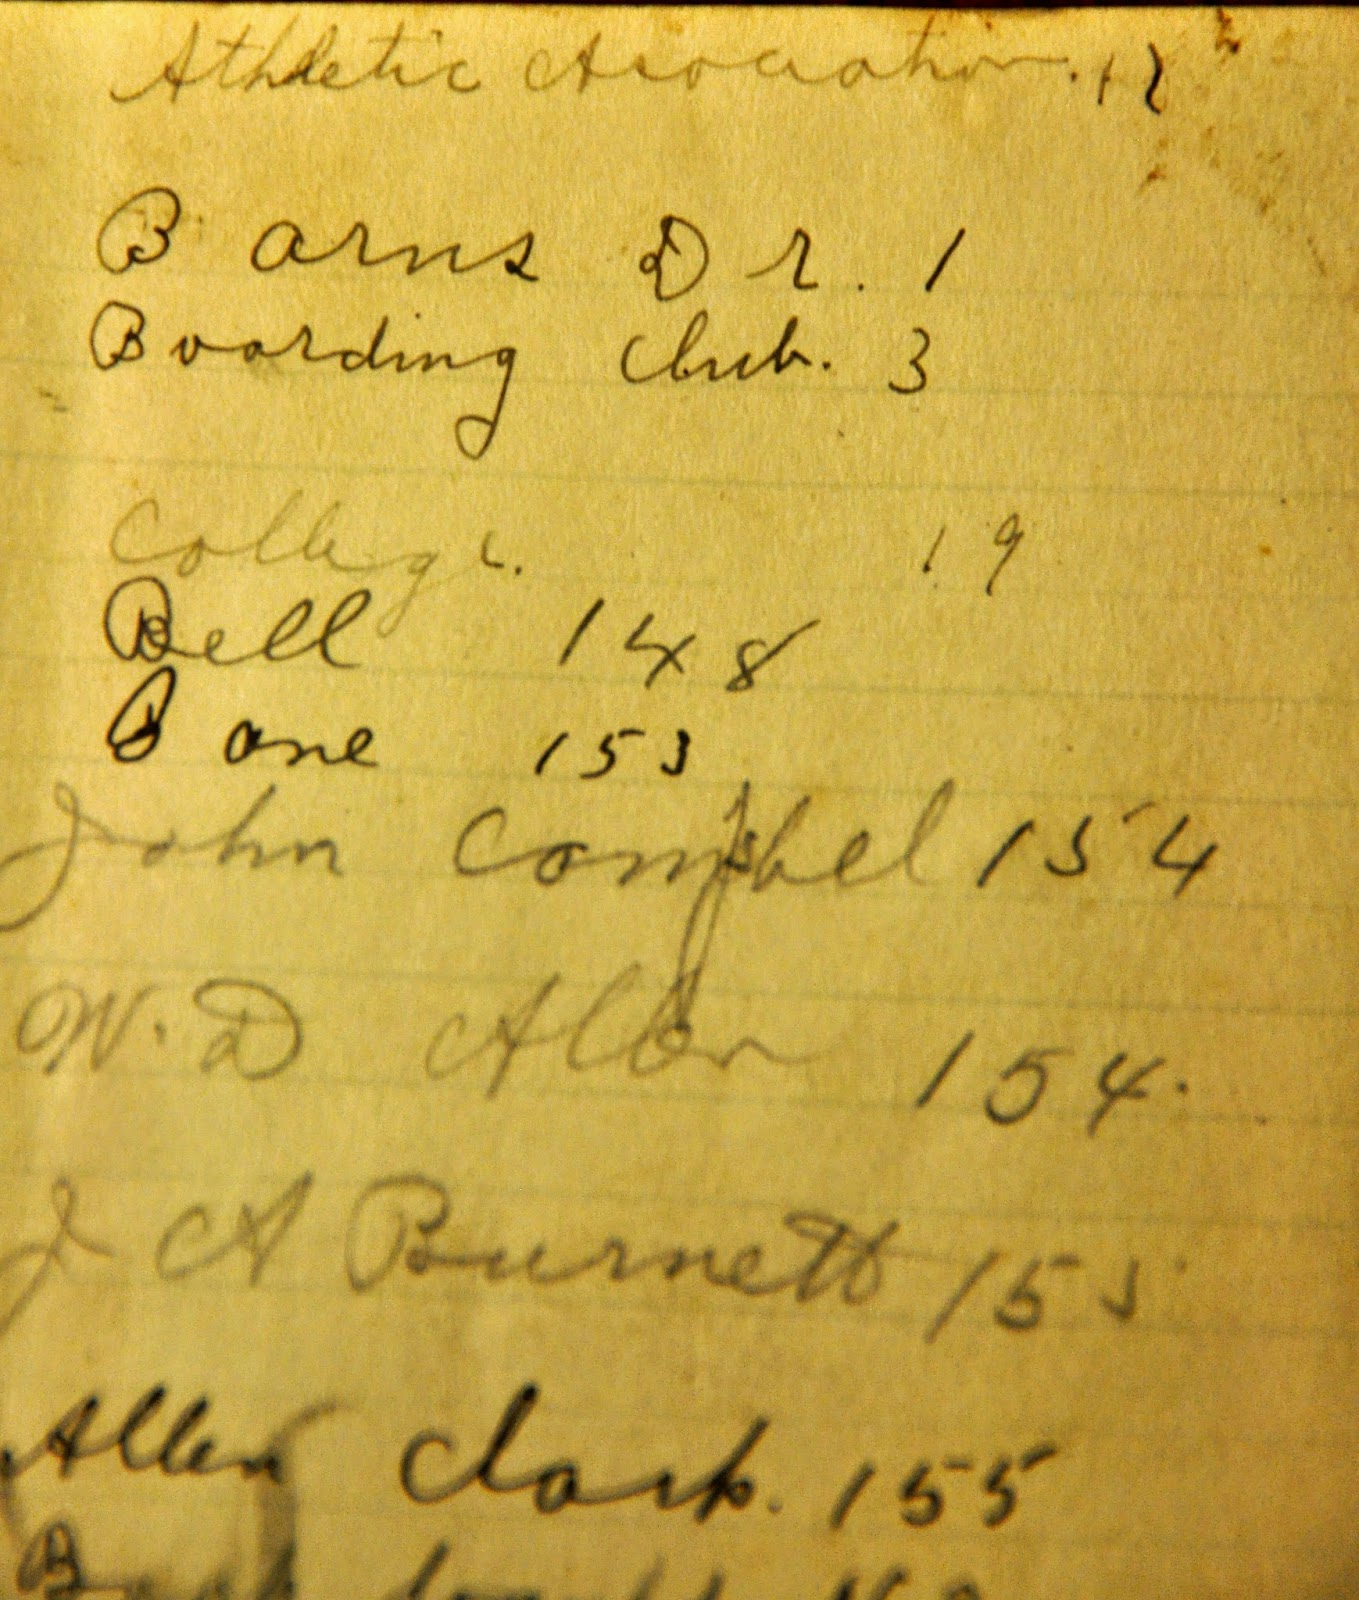 Athletic Asociation. 12
Barns Dr. 1
Boarding Club. 3
College. 19
Bell 148
Bane 153
John Campbel 154
W. D Allen 154.
J A Burnett 155
Allen Clark. 155